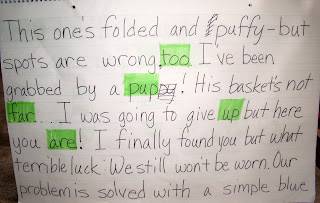 This one's folded and puffy-but
spots are wrong, too. I've been
grabbed by a puppy! His basket's not
far... I was going to give up but here
you are! I finally found you but what
terrible luck. We still won't be worn. Our
problem is solved with a simple blue